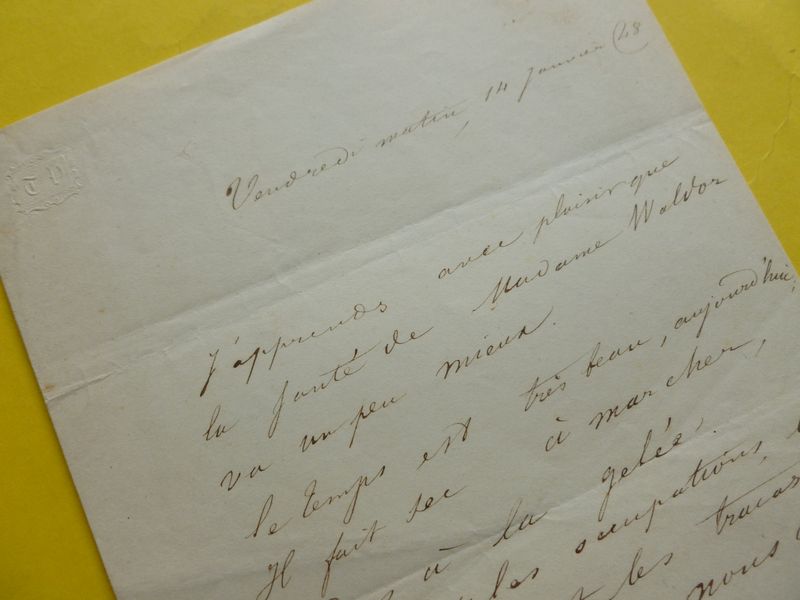 T D
Vendredi matin, 14 Janvier (48
J'apprends avec plaisir que
la santé de Madame Waldor
va un peu mieux.
le temps est très beau, aujourd'hui,
Il fait sec à marcher,
à la gelée,
les occupations,
les tracas
nous